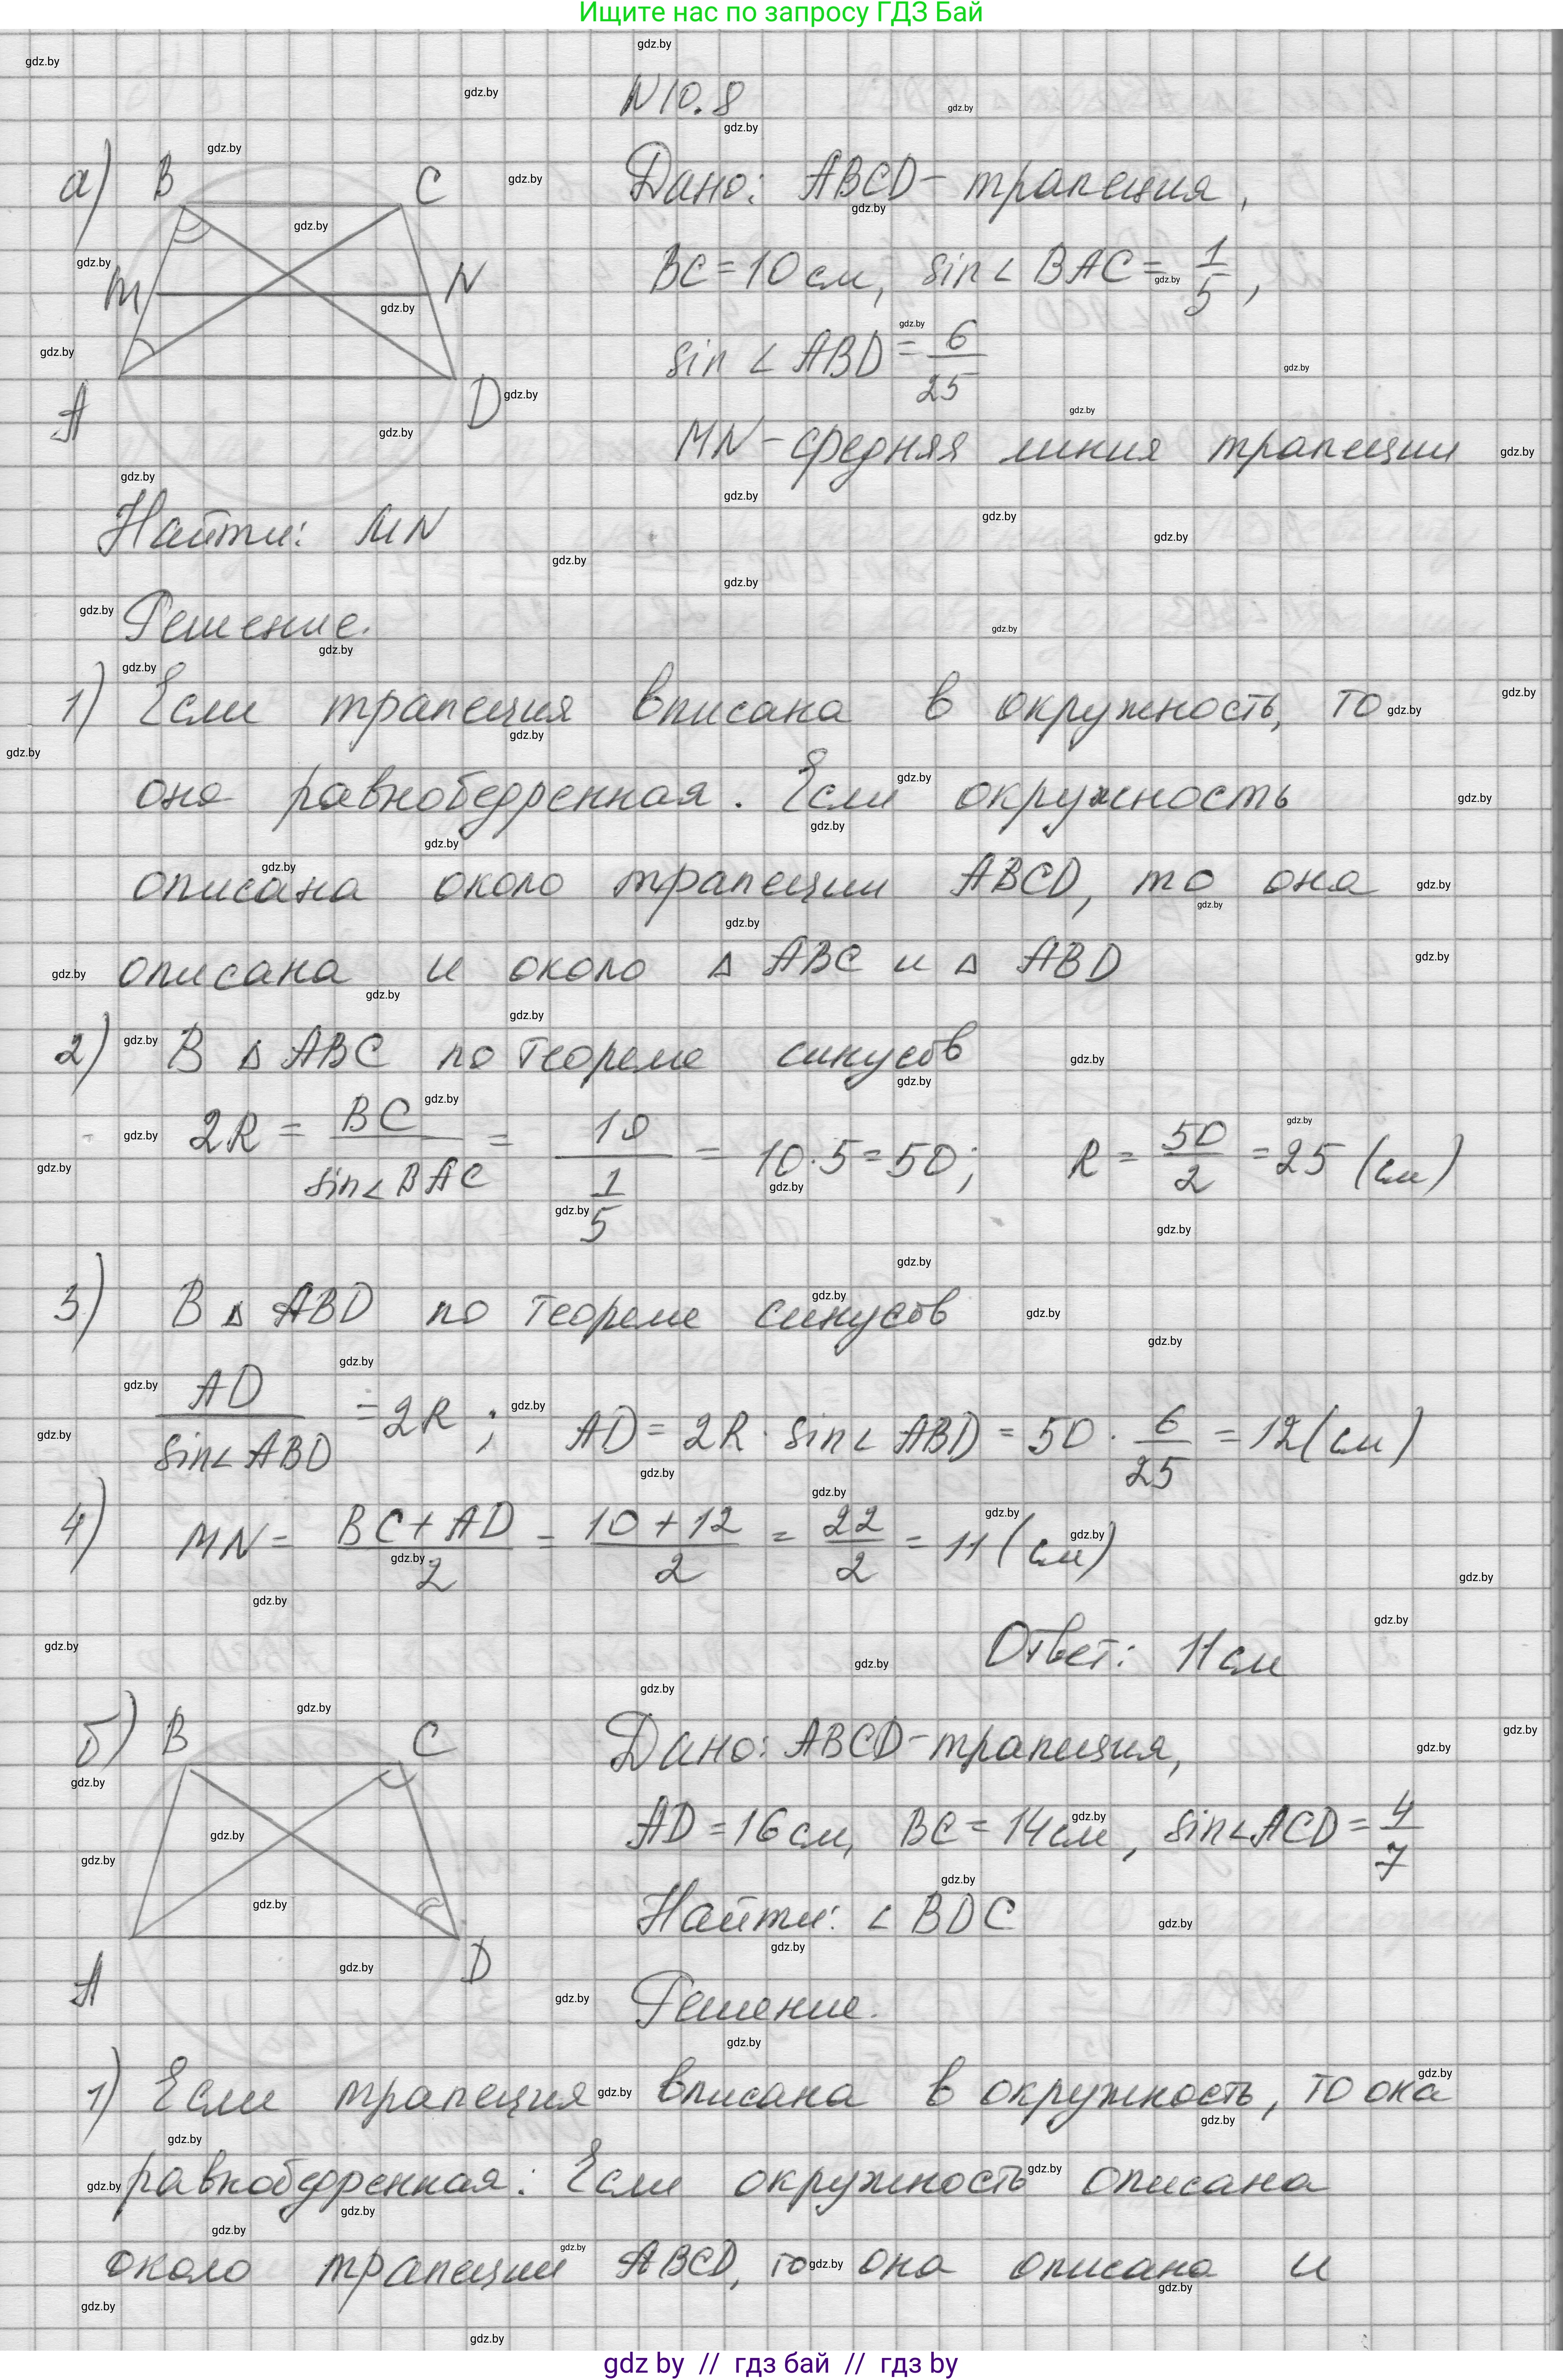 Ищите нас по запросу ГДЗ Бай
N 10.8
а) B C M N A D
Дано: ABCD - трапеция,
BC = 10 см, sin∠BAC = 1/5,
sin∠ABD = 6/25
MN - средняя линия трапеции
Найти: MN
Решение.
1) Если трапеция вписана в окружность, то
она равнобедренная. Если окружность
описана около трапеции ABCD, то она
описана и около △ ABC и △ ABD
2) В △ ABC по теореме синусов
2R = BC/sin∠BAC = 10/(1/5) = 10·5 = 50; R = 50/2 = 25 (см)
3) В △ ABD по теореме синусов
AD/sin∠ABD = 2R; AD = 2R · sin∠ABD = 50 · 6/25 = 12 (см)
4) MN = (BC + AD)/2 = (10 + 12)/2 = 22/2 = 11 (см)
Ответ: 11 см
б) B C A D
Дано: ABCD - трапеция,
AD = 16 см, BC = 14 см, sin∠ACD = 4/7
Найти: ∠BDC
Решение.
1) Если трапеция вписана в окружность, то она
равнобедренная. Если окружность описана
около трапеции ABCD, то она описана и
gdz by // гдз бай // гдз by